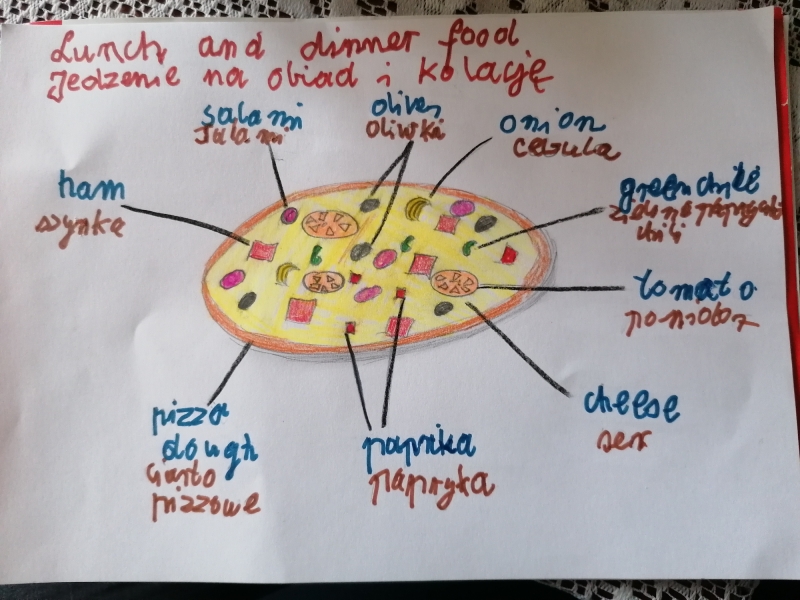 Lunch and dinner food
Jedzenie na obiad i kolację
salami
salami
olives
oliwka
onion
cebula
ham
szynka
green chili
zielona papryczka
chili
tomato
pomidor
cheese
ser
pizza
dough
ciasto
pizzowe
paprika
papryka